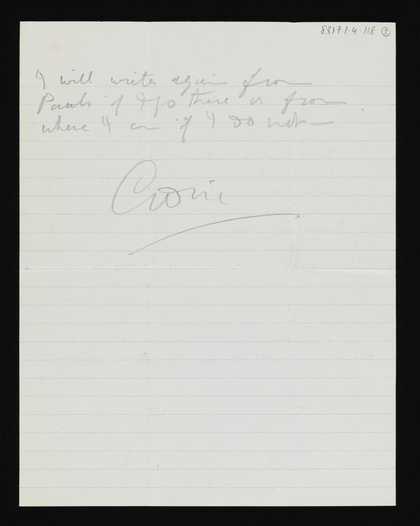 8317.1.4.118 2
I will write again from
if I go there or from
where I am if I do not —